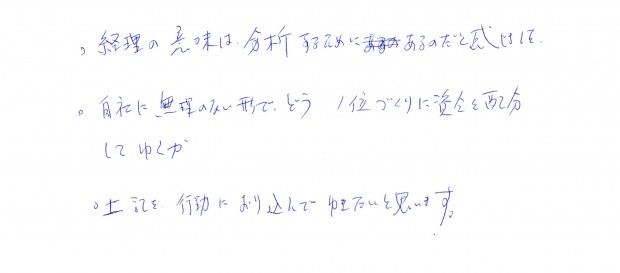 。経理の意味は、分析するためにあるのだと感じました。
。自社に無理のない形で、どう 1位づくりに資金を配分
してゆくか
。上記を、行動におり込んでゆきたいと思います。